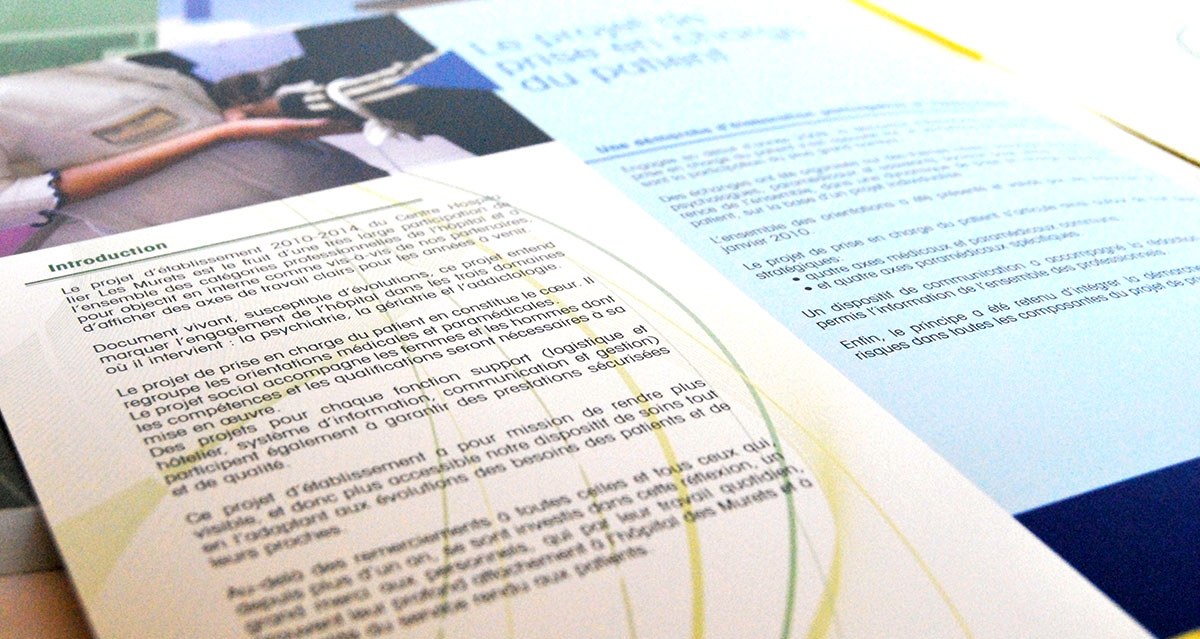 Introduction
Le projet d'établissement 2010-2014 du Centre Hospita-
lier Les Murets est le fruit d'une très large participation de
l'ensemble des catégories professionnelles de l'hôpital et a
pour objectif en interne comme vis-à-vis de nos partenaires,
d'afficher des axes de travail clairs pour les années à venir.
Document vivant, susceptible d'évolutions, ce projet entend
marquer l'engagement de l'hôpital dans les trois domaines
où il intervient : la psychiatrie, la gériatrie et l'addictologie.
Le projet de prise en charge du patient en constitue le cœur. Il
regroupe les orientations médicales et paramédicales.
Le projet social accompagne les femmes et les hommes dont
les compétences et les qualifications seront nécessaires à sa
mise en œuvre.
Des projets pour chaque fonction support (logistique et
hôtelier, système d'information, communication et gestion)
participent également à garantir des prestations sécurisées
et de qualité.
Ce projet d'établissement a pour mission de rendre plus
visible, et donc plus accessible notre dispositif de soins tout
en l'adaptant aux évolutions des besoins des patients et de
leurs proches.
Au-delà des remerciements à toutes celles et tous ceux qui,
depuis plus d'un an, se sont investis dans cette réflexion, un
grand merci aux personnels, qui par leur travail quotidien,
prouvent leur profond attachement à l'hôpital des Murets et à
du service rendu aux patients
Le projet de
prise en charge
du patient
Une démarche d'élaboration participative
Des échanges ont été organisés sur
l'ensemble, dans une dynamique
patient, sur la base d'un projet individualisé.
L'ensemble des orientations a été présenté et validé
janvier 2010.
Le projet de prise en charge du patient s'articule ainsi autour de
stratégiques:
• quatre axes médicaux et paramédicaux communs
• et quatre axes paramédicaux spécifiques.
Un dispositif de communication a accompagné la
permis l'information de l'ensemble des professionnels.
Enfin, le principe a été retenu d'intégrer la démarche
risques dans toutes les composantes du projet de